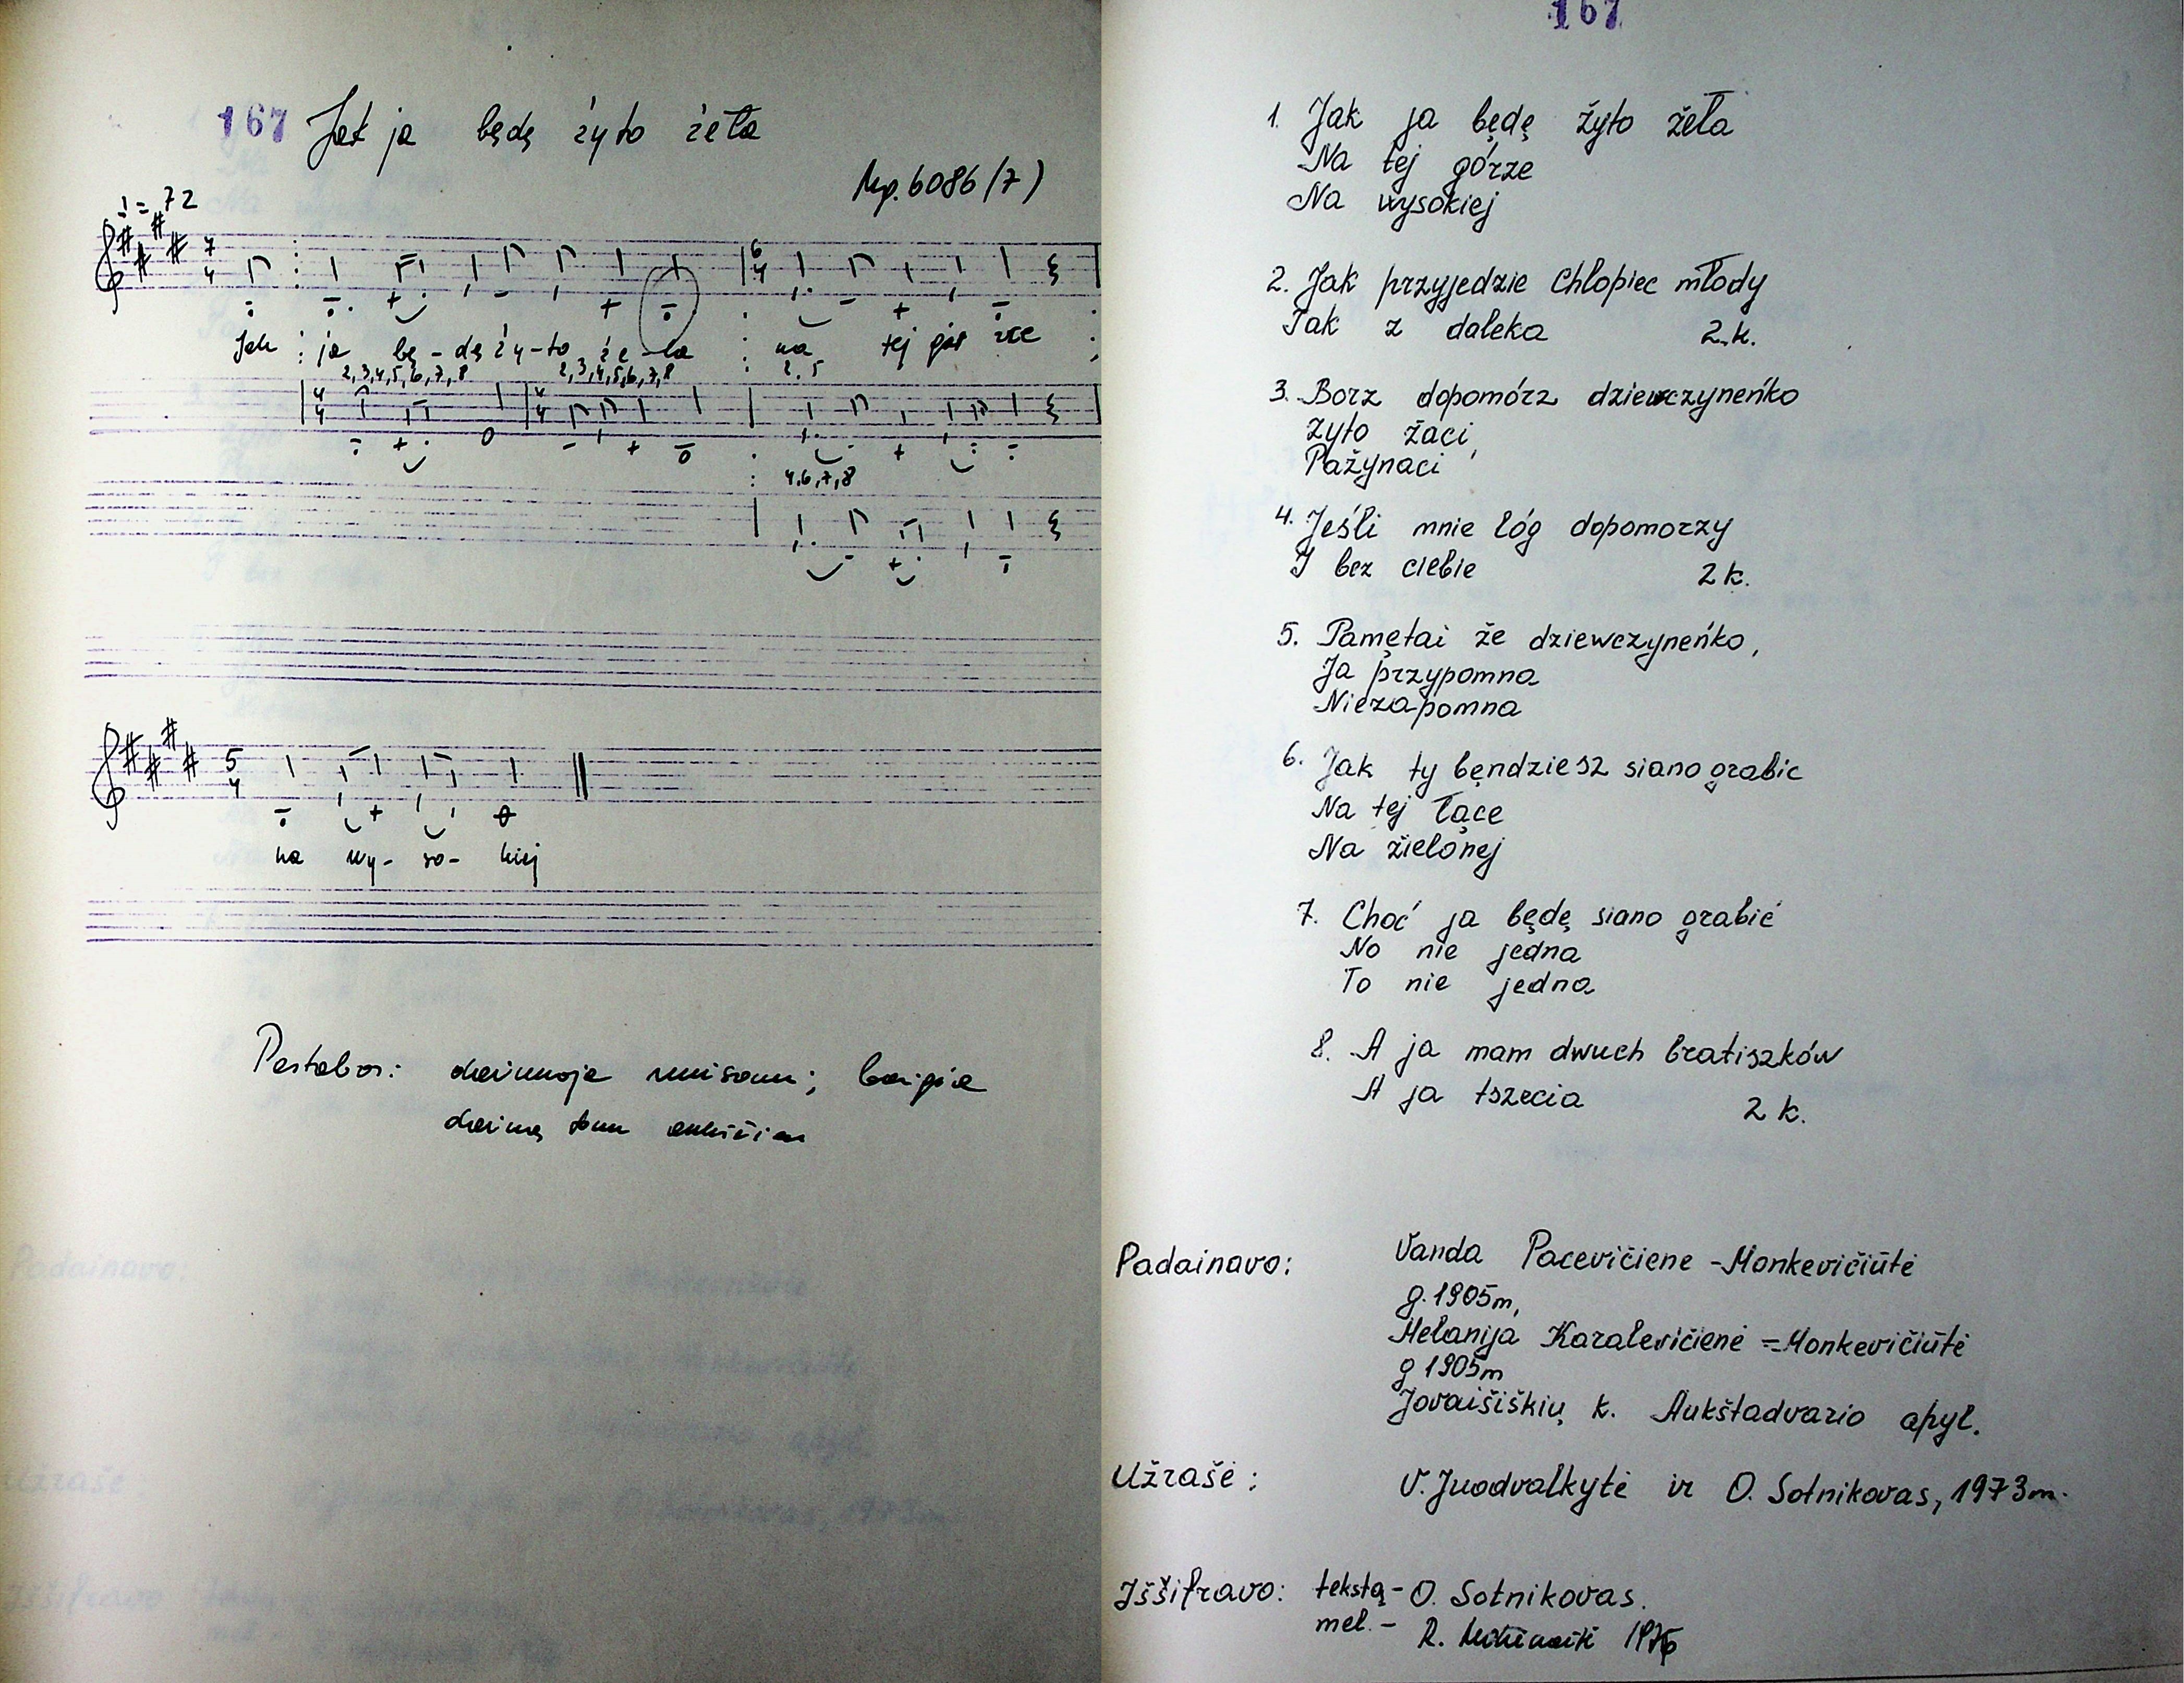 167 Jak ja będę żyto żeła
Mp. 6086 (7)
♩ = 72
7
4
6
4
Jak ja bę - dę ży - to że - ła na tej gór rze
2,3,4,5,6,7,8 2,3,4,5,6,7,8 2.5
4
4
4
4
4,6,7,8
5
4
na wy- so- kiej
Pastabos: dainuoja unisonu; baigia
dainą tonu aukščiau
167
1. Jak ja będę žyto žeła
Na tej górze
Na wysokiej
2. Jak przyjedzie Chlopiec młody
Tak z daleka 2.k.
3. Borz dopomórz dziewczyneńko
žyto žaci,
Pažynaci
4. Jeśli mnie lóg dopomorzy
I bez ciebie 2 k.
5. Pamętai że dziewczyneńko,
Ja przypomna
Niezapomna
6. Jak ty będziesz siano grabic
Na tej łące
Na žielonej
7. Choć ja będę siano grabić
No nie jedna
To nie jedna
8. A ja mam dwuch bratiszków
A ja tszecia 2 k.
Padainavo: Vanda Pacevičiene - Monkevičiūtė
g. 1905m,
Melanija Karalevičienė = Monkevičiūtė
g 1905m
Jovaišiškių k. Aukštadvario apyl.
Užrašė: V. Juodvalkytė ir O. Sotnikovas, 1973m.
Iššifravo: tekstą - O. Sotnikovas.
mel. - R.